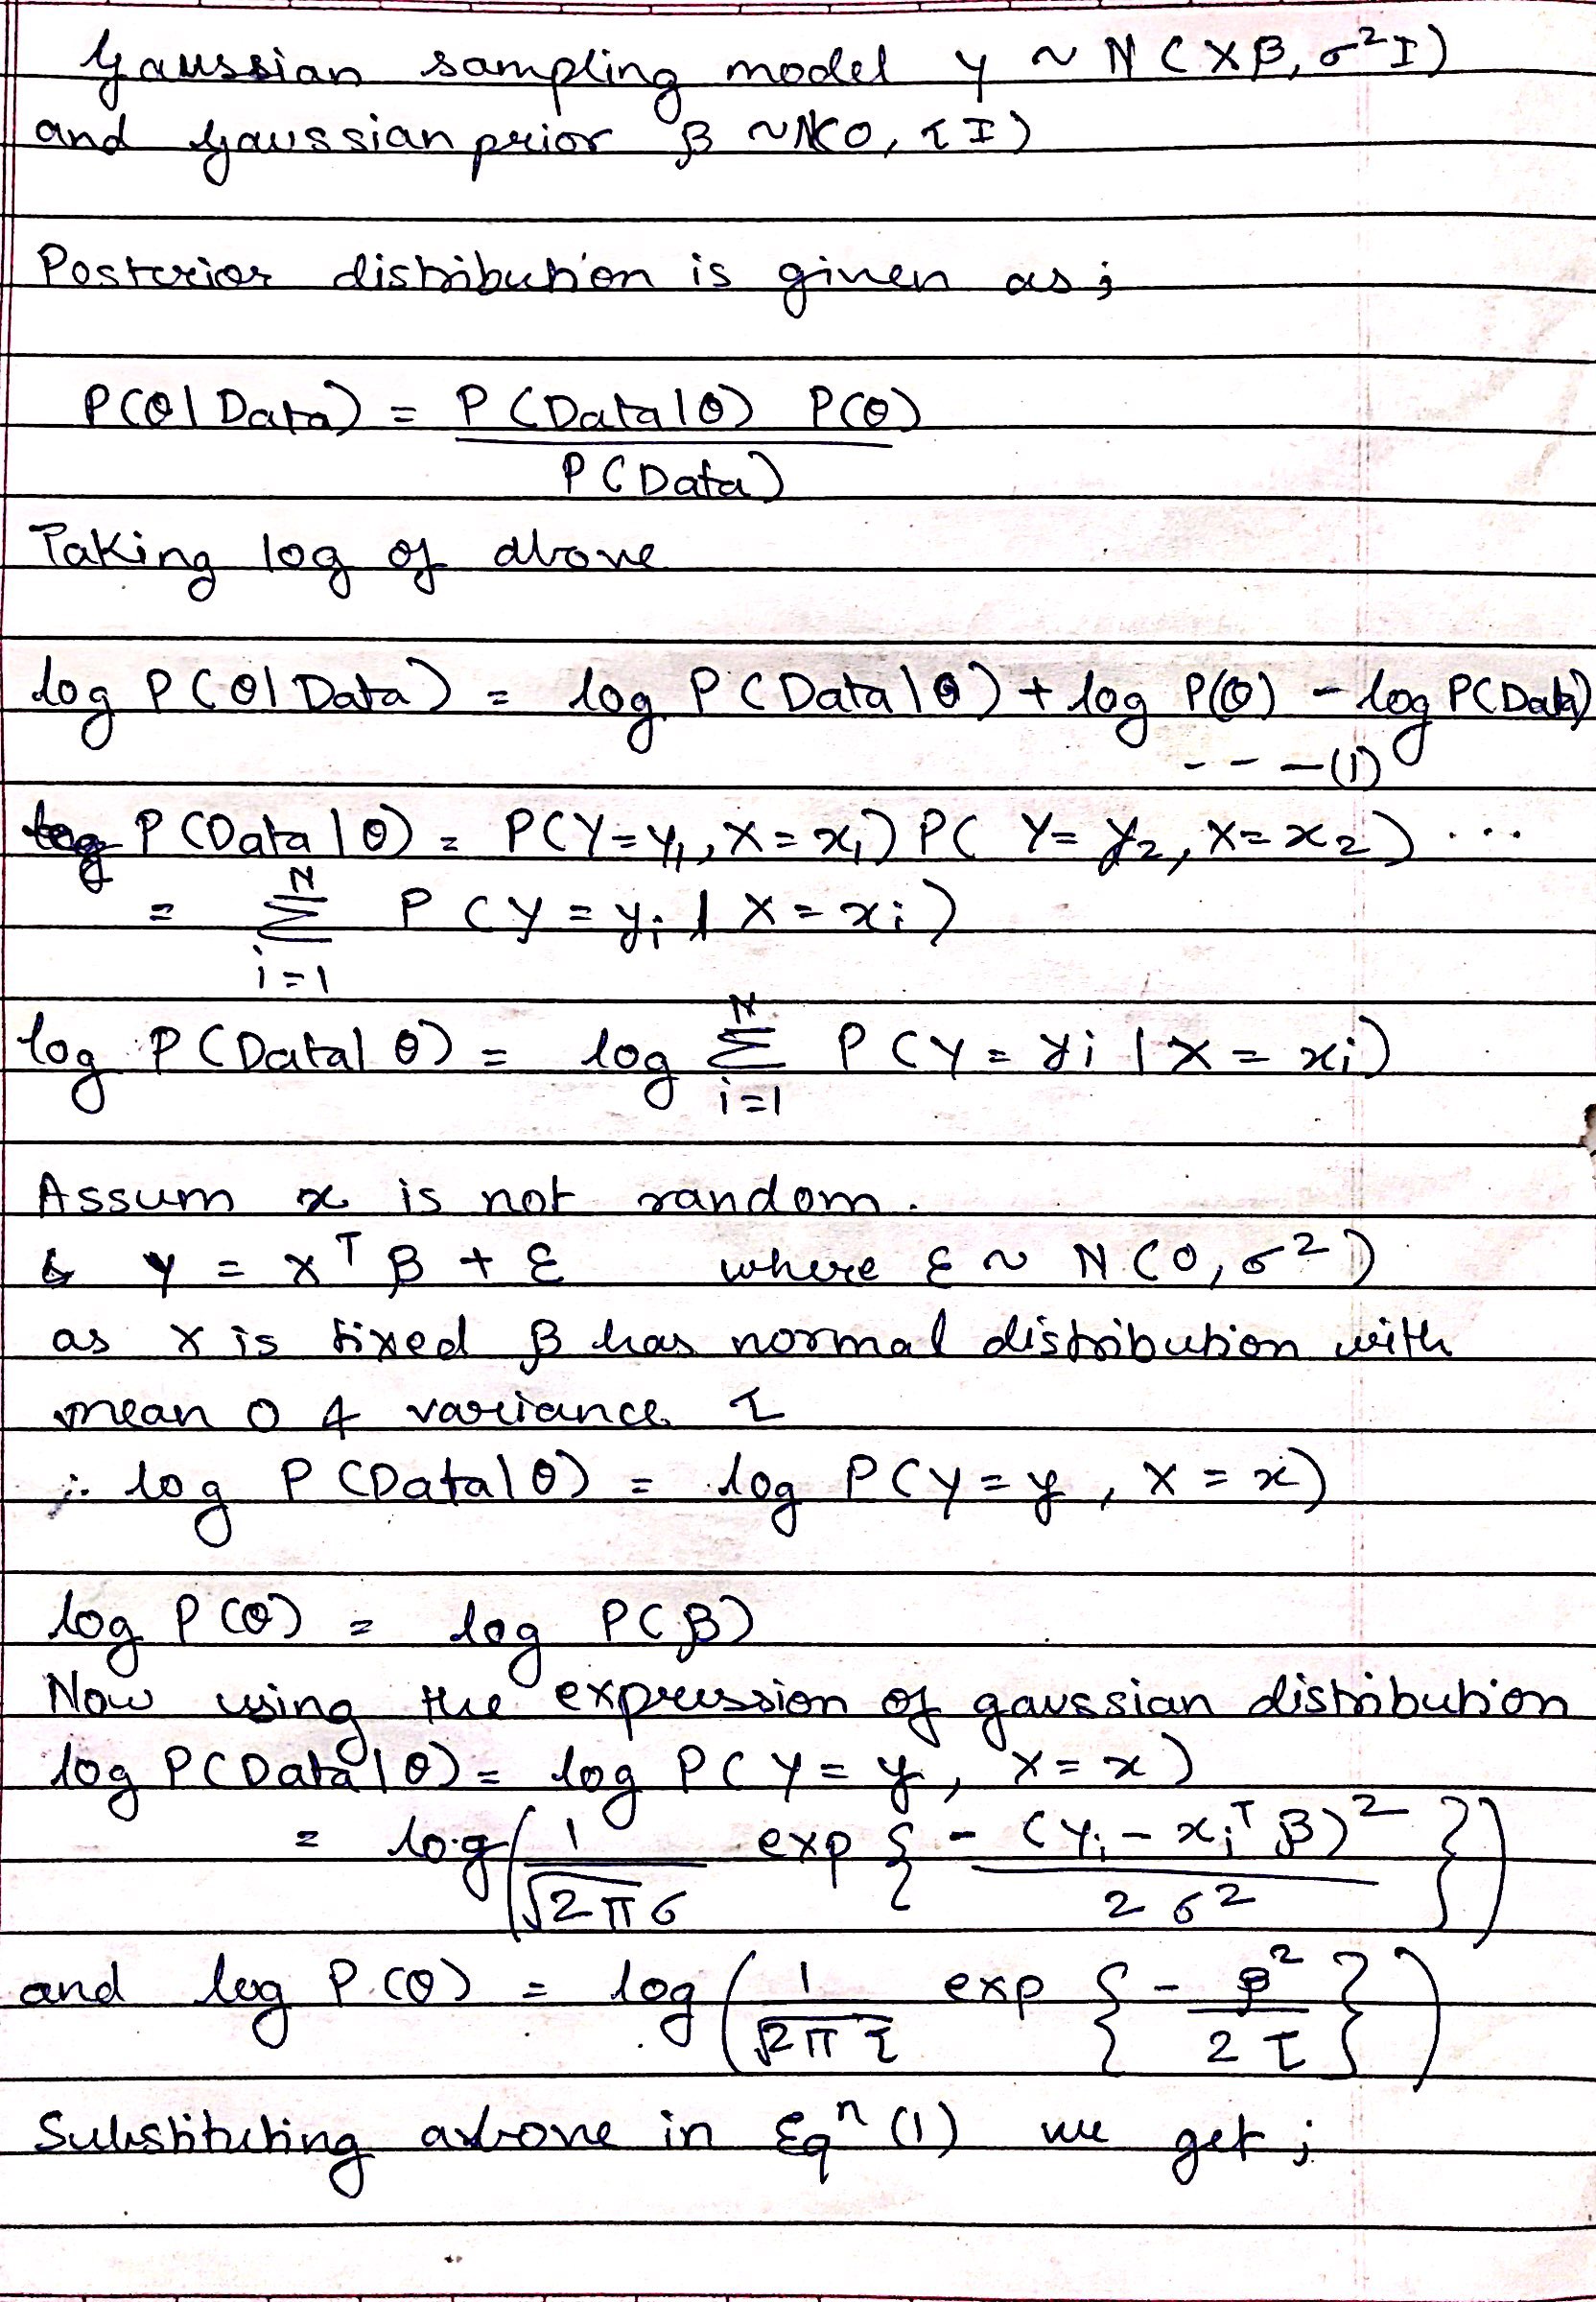 Gaussian sampling model y ~ N(Xβ, σ²I)
and Gaussian prior β ~ N(0, τI)
Posterior distribution is given as;
P(θ|Data) = P(Data|θ) P(θ)
P(Data)
Taking log of above
log P(θ|Data) = log P(Data|θ) + log P(θ) - log P(Data)
- - - (1)
log P(Data|θ) = P(Y=y₁, X=x₁) P(Y=y₂, X=x₂) ...
= Σ_{i=1}^{N} P(Y=yᵢ | X=xᵢ)
log P(Data|θ) = log Σ_{i=1}^{N} P(Y=yᵢ | X=xᵢ)
Assum x is not random.
& Y = Xᵀβ + ε where ε ~ N(0, σ²)
as X is fixed β has normal distribution with
mean 0 & variance τ
∴ log P(Data|θ) = log P(Y=y, X=x)
log P(θ) = log P(β)
Now using the expression of gaussian distribution
log P(Data|θ) = log P(Y=y, X=x)
= log(1/√2πσ exp{-(yᵢ - xᵢᵀβ)²/2σ²})
and log P(θ) = log(1/√2πτ exp{-β²/2τ})
Substituting above in Eqⁿ (1) we get;